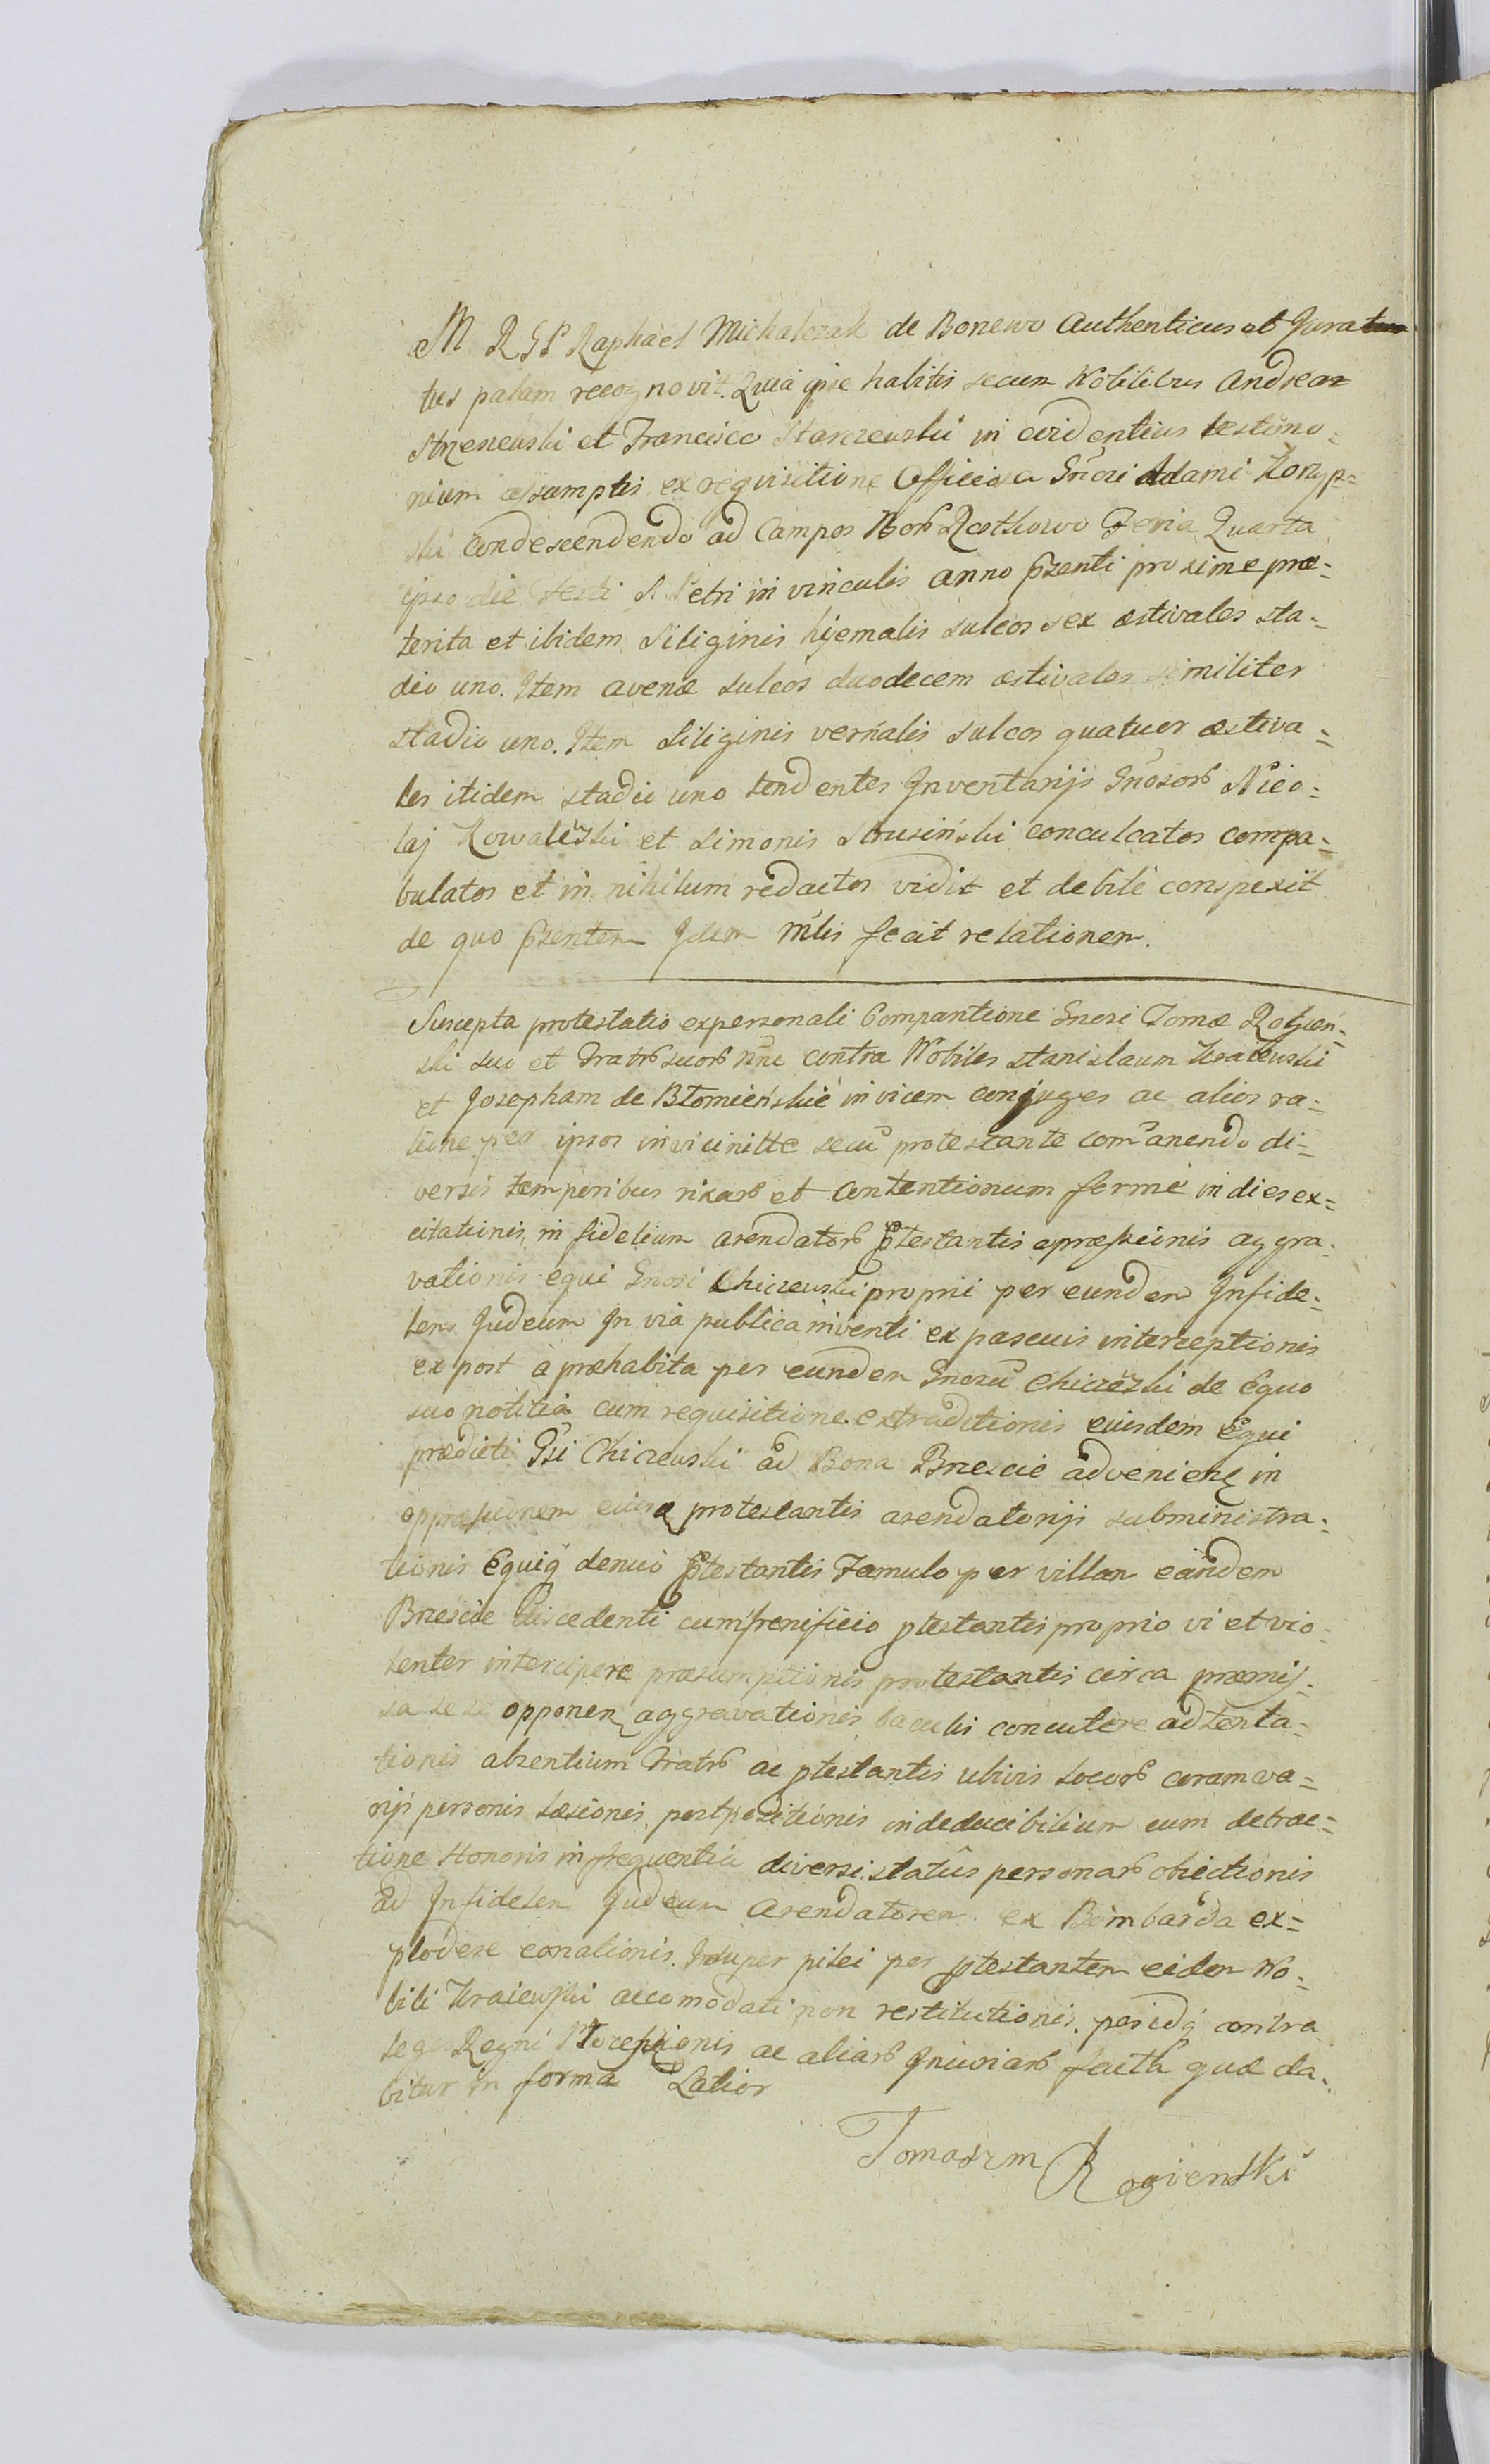 M R G S Raphael Michalczak de Bonewo Authenticus et Jura
tus palam recognovit. Quia ipse habitis secum Nobilibus Andrea
Strzeszewski et Francisco Starczewski in evidentius testimo=
nium assumptis ex requisitione Officiosa Gnõsi Adami
ski condescendendo ad Campos Feria Quarta
ipso die festi S. Petri in vinculis anno pszenti proxime præ=
terita et ibidem Siliginis hyemalis sulcos sex æstivales sta=
dio uno. Item avenæ sulcos duodecem æstivales similiter
stadio uno. Item Siliginis vernalis sulcos quatuor æstiva=
les itidem stadio uno tendentes Inventarijs Gnõsorum Nico=
laj Kowalewski et Simonis Strusiński conculcatos compa=
bulatos et in nihilum redactos vidit et debite conspexit
de quo pszentem Idem mlis fecit relationem.
Suscepta protestatio ex personali Compantione Gnosi Tomæ Rogień=
ski suo et Fratrum suorum nne contra Nobiles Stanislaum Kraiewski
et Josepham de Błomieńskie invicem conjuges ac alios ra=
tione per ipsos in vicinitte secũ protestante com̃anendo di=
versis temporibus rixarum et contentionum fermè in dies ex=
citationis, infidelium arendatorum ptestantis opræssionis aggra=
vationis equi Gnosi Chiczewski proprii per eundem Infide=
lem Judeum In via publica inventi ex pascuis interceptionis
ex post à præhabita per eundem Gnosũ Chiczewski de Equo
suo notitia cum requisitione extraditionis eiusdem Equi
prædicti Gsi Chiczewski ad Bona Brzescie advenien in
oppræssionem eiusq protestantis arendatorijs subministra=
tionis Equiq denuò ptestantis Famulo per villam eandem
Brzescie discedenti cum frenificio ptestantis proprio vi et vio=
lenter intercipere præsumptionis, protestantis circa præmis=
sa sese opponen aggravationis baculis concutere adtenta=
tionis absentium Fratrum ac ptestantis ubivis locorum coram va=
rijs personis læsionis, postpositionis indeducibilium cum detrac=
tione Honoris in frequentia diversi statûs personarum obiectionis
ad Infidelem Judeum Arendatorem ex Bombarda ex=
plodere conationis. Insuper pilei per ptestantem eidem No=
bili Kraiewski accomodati non restitutionis. per idq contra
leges Regni Processionis ac aliarum Iniuriarum facta quæ da=
bitur in forma Latior
Tomasz m Rogienski